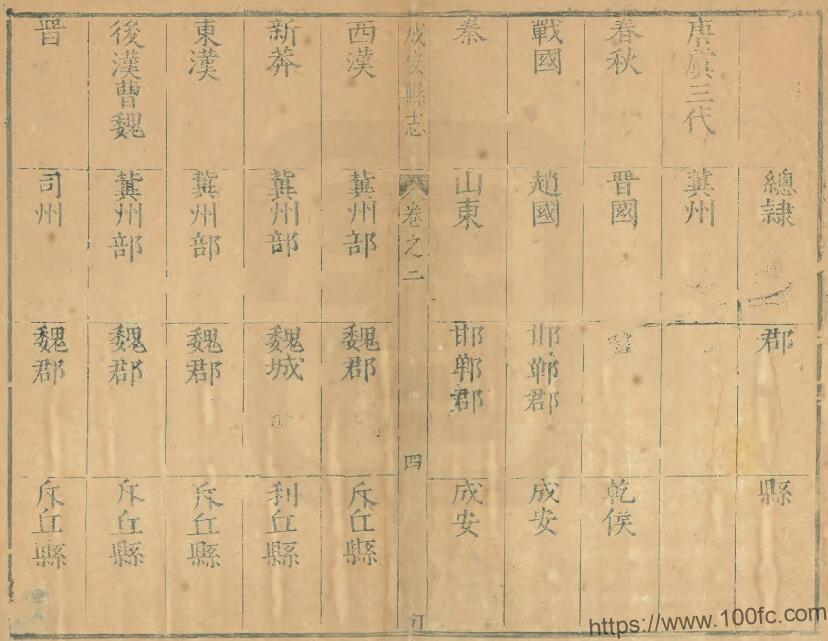 總隸 郡 縣
唐虞三代 冀州
春秋 晉國 乾侯
戰國 趙國 邯鄲郡 成安
秦 山東 邯鄲郡 成安
成安縣志 卷之二 四
西漢 冀州部 魏郡 斥丘縣
新莽 冀州部 魏城 利丘縣
東漢 冀州部 魏郡 斥丘縣
後漢曹魏 冀州部 魏郡 斥丘縣
晋 司州 魏郡 斥丘縣
https://www.100fc.com